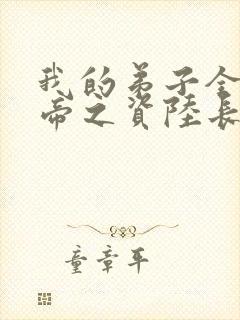 我的弟子全
帝之資陸長
童章平